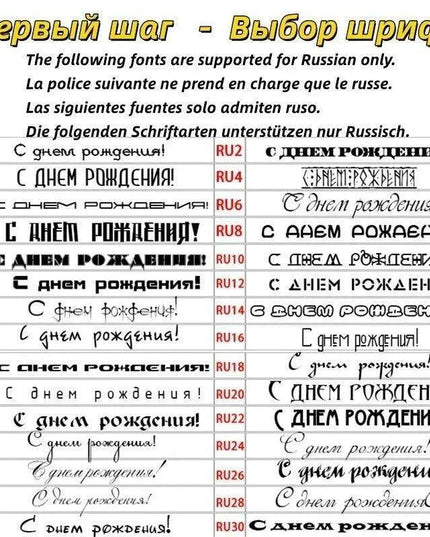 ервый шаг - Выбор шриф
The following fonts are supported for Russian only.
La police suivante ne prend en charge que le russe.
Las siguientes fuentes solo admiten ruso.
Die folgenden Schriftarten unterstützen nur Russisch.
С днем рождения! RU2 С ДНЕМ РОЖДЕНИ
С ДНЕМ РОЖДЕНИЯ! RU4 С ДНЕМ РОЖДЕНИЯ
С ДНЕМ РОЖДЕНИЯ! RU6 С днем рождения
С ДНЕМ РОЖДЕНИЯ! RU8 С ДНЕМ РОЖДЕН
С ДНЕМ РОЖДЕНИЯ! RU10 С ДНЕМ РОЖДЕНИ
С днем рождения! RU12 С ДНЕМ РОЖДЕН
С днем рождения! RU14 С ДНЕМ РОЖДЕН
С днем рождения! RU16 С днем рождения!
С ДНЕМ РОЖДЕНИЯ! RU18 С днем рождения!
С днем рождения! RU20 С ДНЕМ РОЖДЕН
С днем рождения! RU22 С ДНЕМ РОЖДЕНИ
С днем рождения! RU24 С днем рождения!
С днем рождения! RU26 С днем рождени
С днем рождения! RU28 С днем рождения
С днем рождения! RU30 С днем рожден